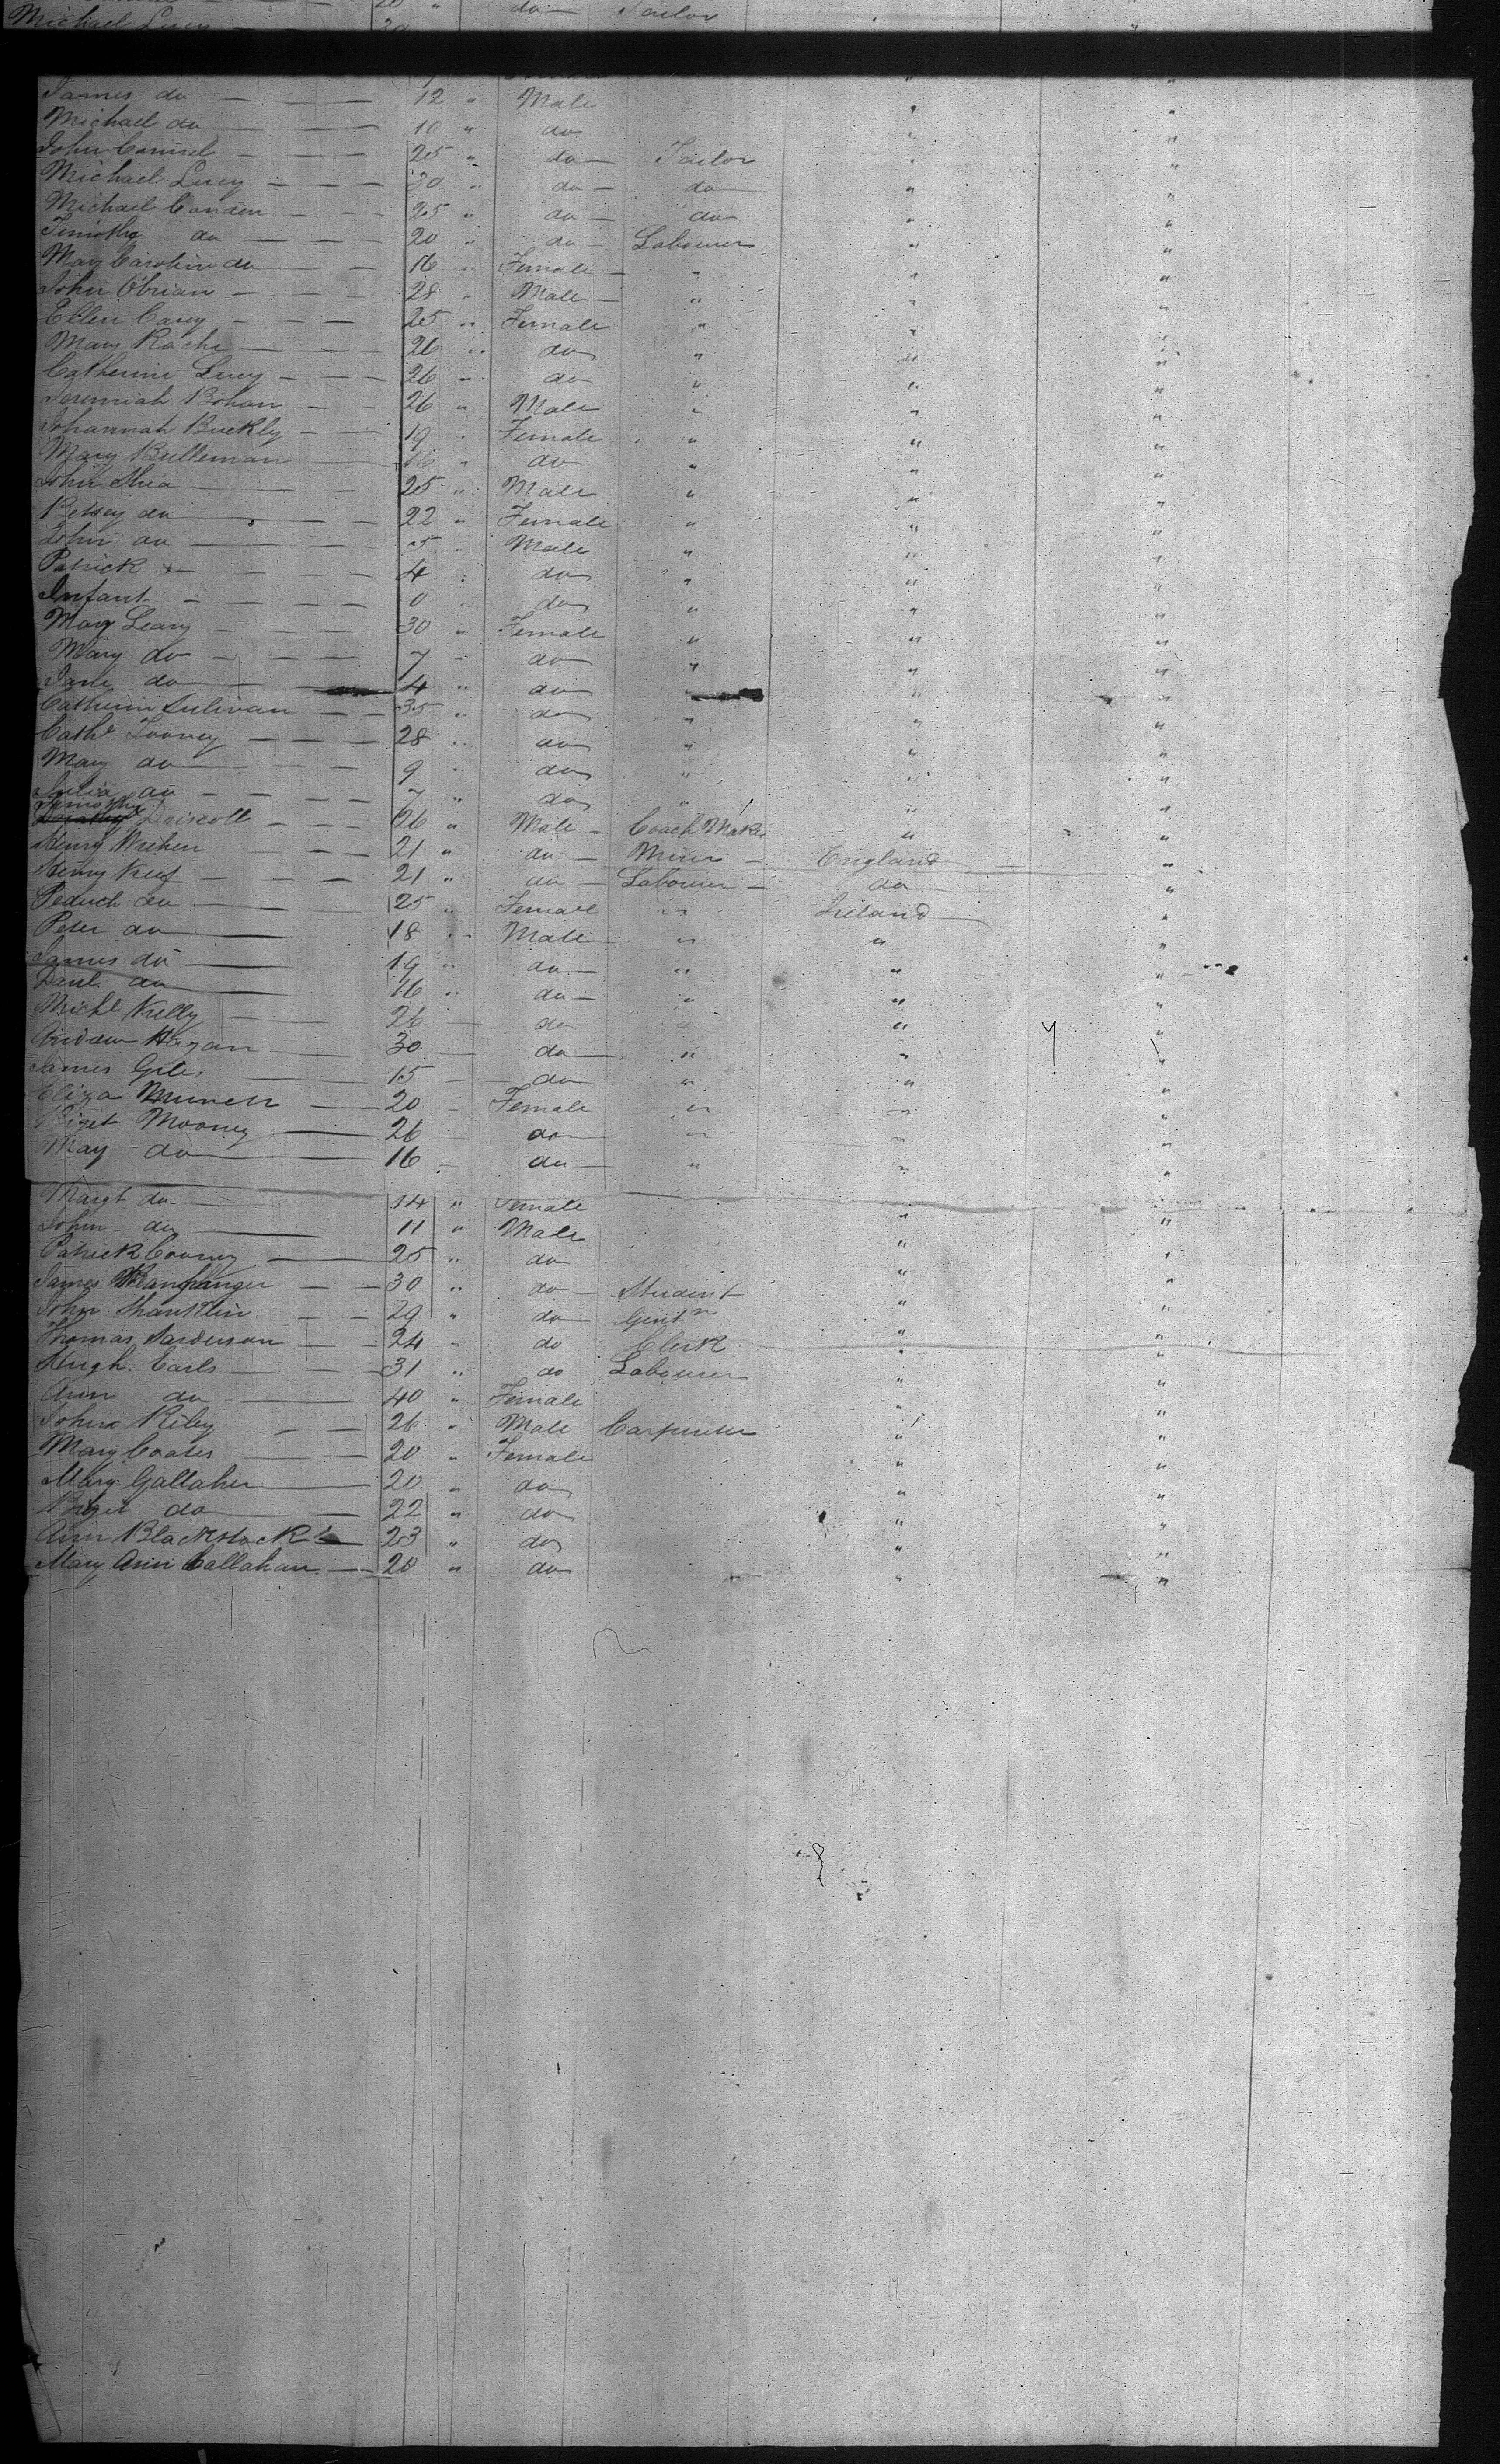 20 " do — Tailor
Michael Lucy — 30
James do — — — 12 " Male " "
Michael do — — — 10 " do " "
John — — — 25 " do — Tailor " "
Michael Lucy — — — 30 " do — do " "
Michael Conden — — — 25 " do — do " "
Timothy do — — — 20 " do — Labourer " "
Mary Caroline do — — 16 " Female — " " "
John Obrian — — — 28 " Male — " " "
Ellen Carey — — — 25 " Female " " "
Mary Roche — — — 26 " do " " "
Catherine Lucy — — — 26 " do " " "
Jeremiah Bohan — — 26 " Male " " "
Johannah Buckly — — 19 " Female " " "
Mary Bulleman — 16 " do " " "
John Shea — — — 25 " Male " " "
Betsey do — — — 22 " Female " " "
John do — — — 5 " Male " " "
Patrick — — — 4 " do " " "
Infant — — — 0 " do " " "
Mary Leary — — — 30 " Female " " "
Mary do — — — 7 " do " " "
Jane do — 4 " do " " "
Catherin Sulivan — — 35 " do " " "
Cathe Tooney — — — 28 " do " " "
Mary do — — — 9 " do " " "
Julia do — — — 7 " do " " "
Timothy
Driscoll — — — 26 " Male — Coach Maker " "
Henry — — — 21 " do — Miner — England "
Henry — — — 21 " do — Labourer — do "
do — 25 " Female " Ireland "
Peter do — 18 " Male " " "
James do — 19 " do — " " "
Danl. do — 16 " do — " " "
Michl Kelly — — 26 — do " " "
Andrew Hagan — 30 — do — " " "
James — 15 — do " " "
Eliza — 20 — Female " " "
Mooney — 26 — do " " "
May do — 16 — do — " " "
Margt do — 14 " Female " "
John do — 11 " Male " "
Patrick Cooney — 25 " do " "
James — — 30 " do — Student " "
John Shanklin — — 29 " do — Gentn " "
Thomas Sanderson — — 24 " do Clerk " "
Hugh Earls — — 31 " do Labourer " "
Ann do — 40 " Female " "
John Riley — — 26 " Male Carpenter " "
Mary Coates — — 20 " Female " "
Mary Gallaher — 20 " do " "
do — 22 " do " "
Ann Blackstock — 23 " do " "
Mary Ann Callahan — 20 " do " "